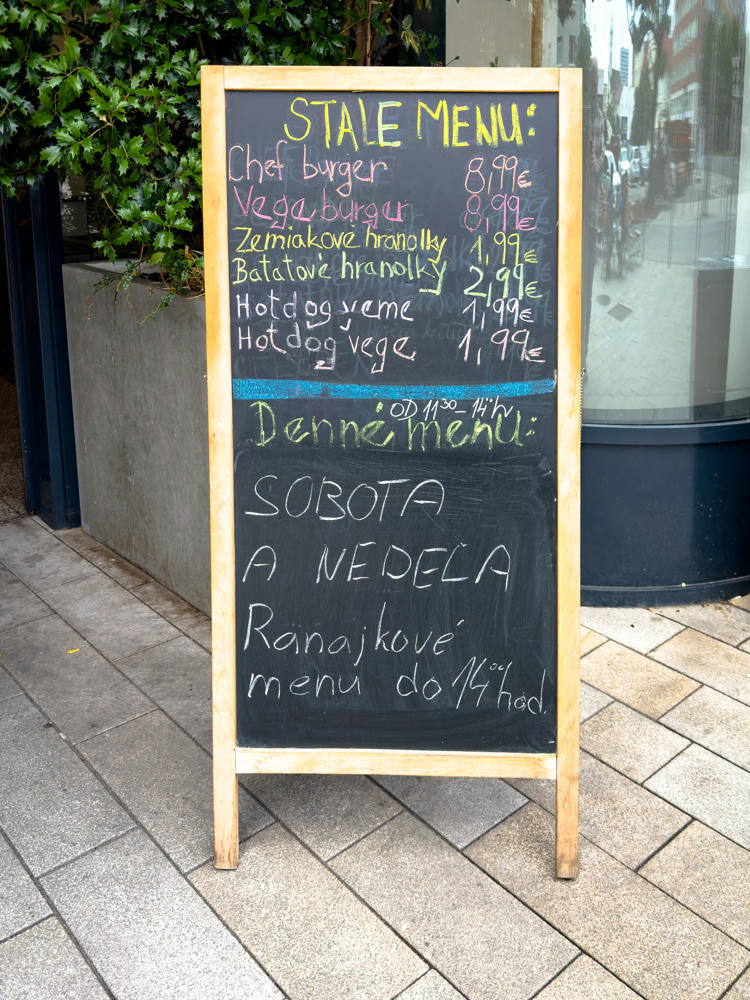 STALE MENU:
Chef burger 8,99€
Vege burger 8,99€
Zemiakové hranolky 1,99€
Batatové hranolky 2,99€
Hotdog veme 1,99€
Hotdog vege 1,99€
OD 11³⁰-14ʰʳ
Denné menu:
SOBOTA
A NEDEĽA
Raňajkové
menu do 14⁰⁰ hod.